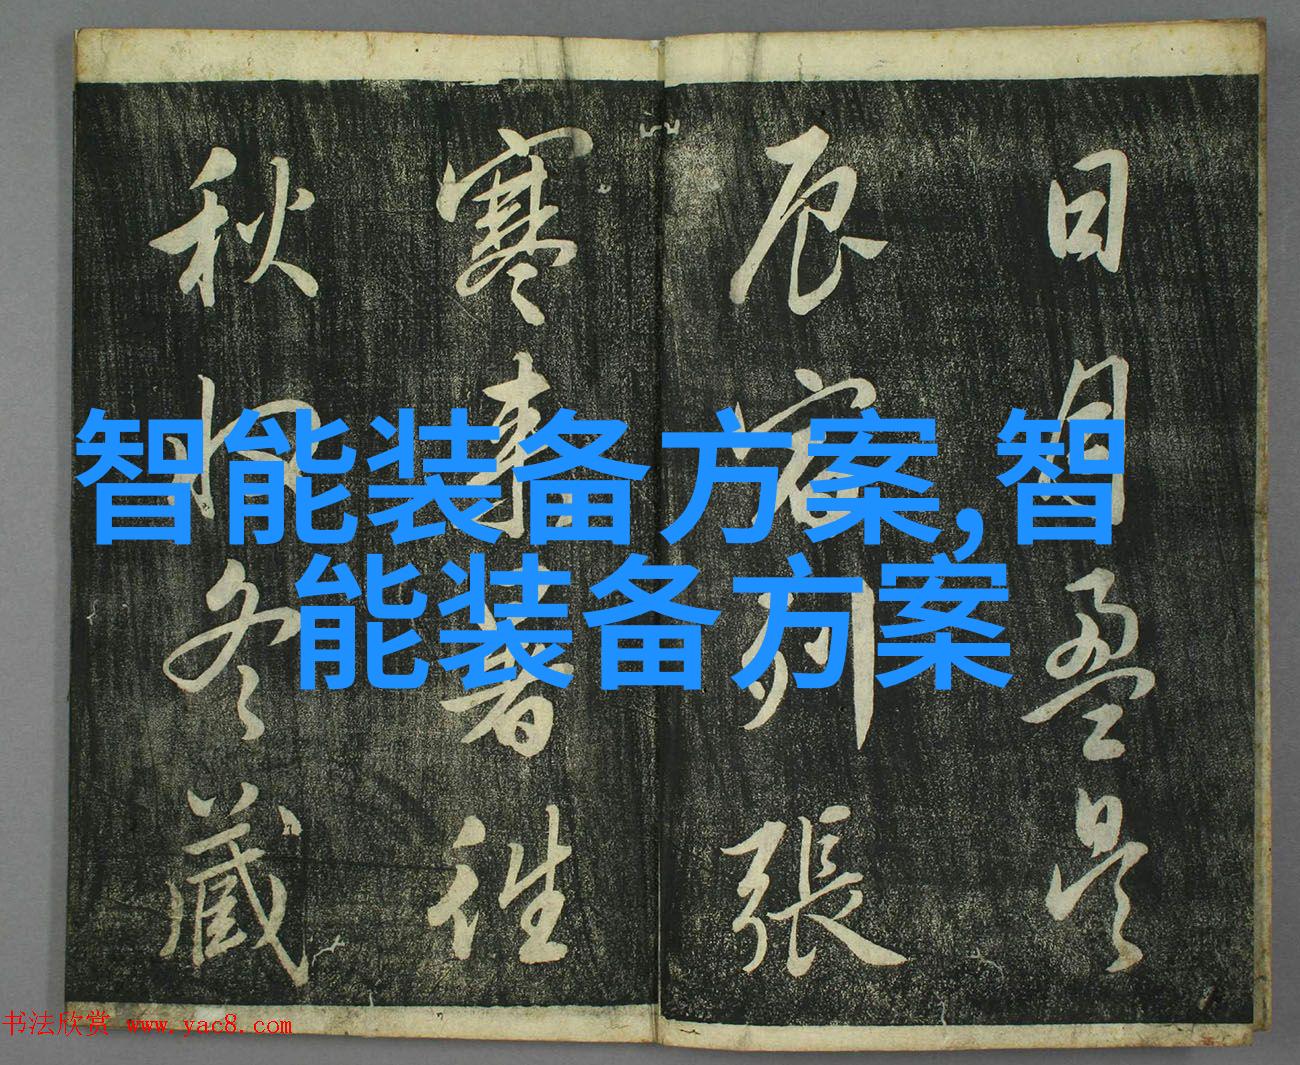 智能装备方案,智
能装备方案
日月盈昃
辰宿列張
寒來暑往
秋收冬藏
书法欣赏 www.yac8.com